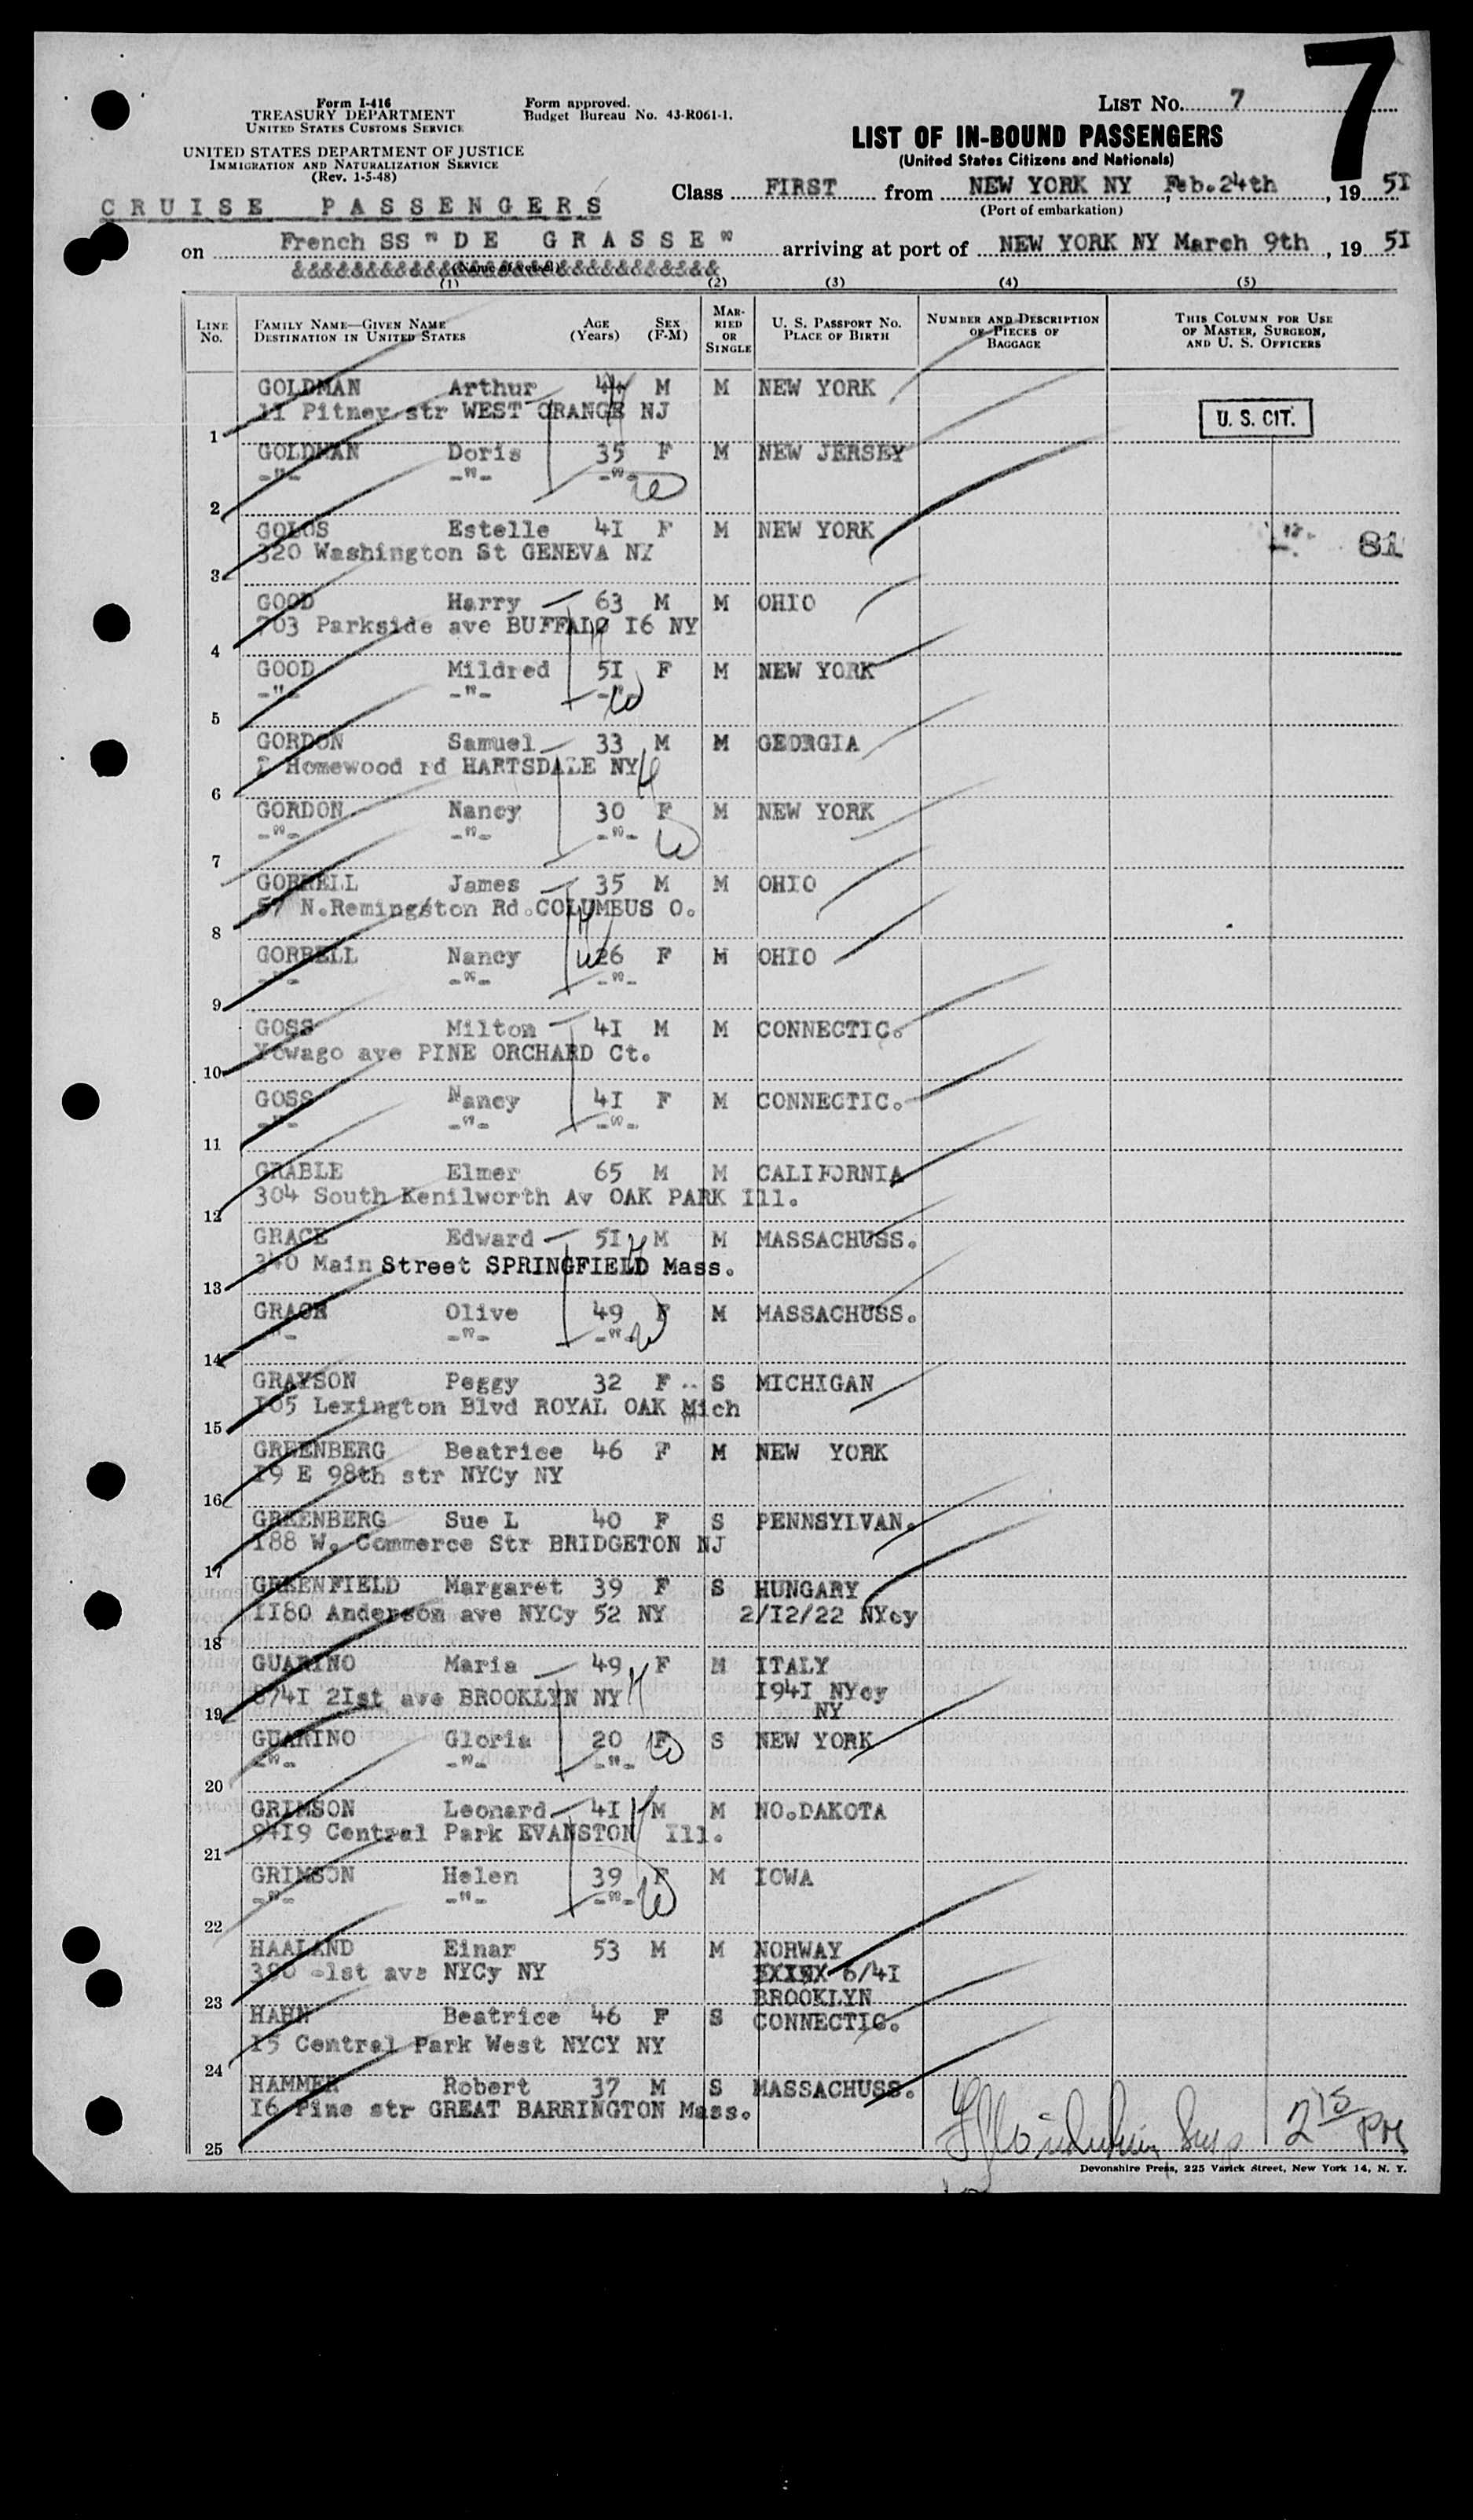 7
Form I-416
TREASURY DEPARTMENT
UNITED STATES CUSTOMS SERVICE
UNITED STATES DEPARTMENT OF JUSTICE
IMMIGRATION AND NATURALIZATION SERVICE
(Rev. 1-5-48)
Form approved.
Budget Bureau No. 43-R061-1.
LIST NO. 7
LIST OF IN-BOUND PASSENGERS
(United States Citizens and Nationals)
CRUISE PASSENGERS
Class FIRST from NEW YORK NY, Feb.24th, 19 5I
(Port of embarkation)
on French SS "DE GRASSE" arriving at port of NEW YORK NY March 9th, 19 5I
(Name of vessel)
(1) (2) (3) (4) (5)
LINE NO. FAMILY NAME—GIVEN NAME DESTINATION IN UNITED STATES AGE (Years) SEX (F-M) MARRIED OR SINGLE U. S. PASSPORT NO. PLACE OF BIRTH NUMBER AND DESCRIPTION OF PIECES OF BAGGAGE THIS COLUMN FOR USE OF MASTER, SURGEON, AND U. S. OFFICERS
GOLDMAN Arthur 44 M M NEW YORK
1 11 Pitney str WEST ORANGE NJ U. S. CIT.
GOLDMAN Doris 35 F M NEW JERSEY
2 -"- -"- -"-
GOLOS Estelle 4I F M NEW YORK 81
3 320 Washington St GENEVA NY
GOOD Harry 63 M M OHIO
4 703 Parkside ave BUFFALO I6 NY
GOOD Mildred 5I F M NEW YORK
5 -"- -"- -"-
GORDON Samuel 33 M M GEORGIA
6 Homewood rd HARTSDALE NY
GORDON Nancy 30 F M NEW YORK
7 -"- -"- -"-
GORRELL James 35 M M OHIO
8 57 N.Remingston Rd.COLUMBUS O.
GORRELL Nancy 26 F M OHIO
9 -"- -"- -"-
GOSS Milton 4I M M CONNECTIC.
10 Yowago ave PINE ORCHARD Ct.
GOSS Nancy 4I F M CONNECTIC.
11 -"- -"- -"-
GRABLE Elmer 65 M M CALIFORNIA
12 304 South Kenilworth Av OAK PARK Ill.
GRACE Edward 5I M M MASSACHUSS.
13 340 Main Street SPRINGFIELD Mass.
GRACE Olive 49 F M MASSACHUSS.
14 -"- -"- -"-
GRAYSON Peggy 32 F S MICHIGAN
15 I05 Lexington Blvd ROYAL OAK Mich
GREENBERG Beatrice 46 F M NEW YORK
16 I9 E 98th str NYCy NY
GREENBERG Sue L 40 F S PENNSYLVAN.
17 I88 W. Commerce Str BRIDGETON NJ
GREENFIELD Margaret 39 F S HUNGARY
18 II80 Anderson ave NYCy 52 NY 2/I2/22 NYcy
GUARINO Maria 49 F M ITALY
19 874I 2Ist ave BROOKLYN NY I94I NYcy
NY
GUARINO Gloria 20 F S NEW YORK
20 -"- -"- -"-
GRIMSON Leonard 4I M M NO.DAKOTA
21 94I9 Central Park EVANSTON Ill.
GRIMSON Helen 39 F M IOWA
22 -"- -"- -"-
HAALAND Einar 53 M M NORWAY
390 -1st ave NYCy NY 6/4I
23 BROOKLYN
HAHN Beatrice 46 F S CONNECTIC.
24 I5 Central Park West NYCY NY
HAMMER Robert 37 M S MASSACHUSS.
25 I6 Pine str GREAT BARRINGTON Mass.
2 15 PM
Devonshire Press, 225 Varick Street, New York 14, N. Y.